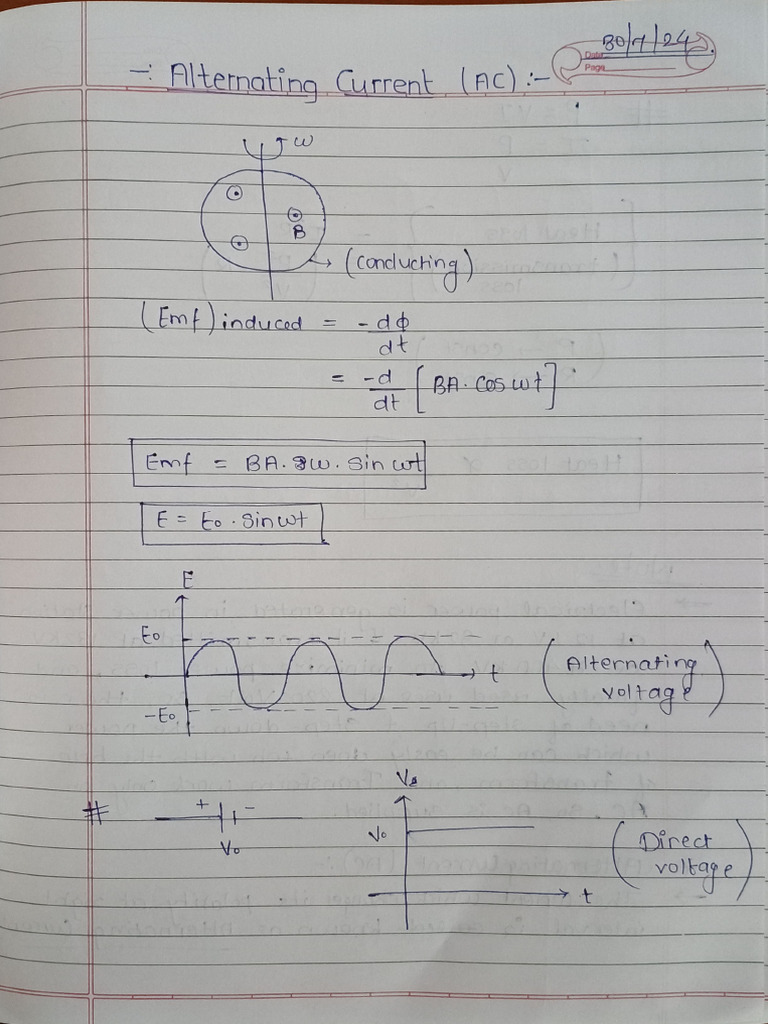 30/7/24.
Date
Page
-: Alternating Current (AC) :-
ω
B
→ (conducting)
(Emf) induced = -dϕ/dt
= -d/dt [BA. cos ωt]
Emf = BA. ω. sin ωt
E = E₀ . sin ωt
E
E₀
-E₀
t
(Alternating
voltage)
#
+ -
V₀
V
V₀
t
(Direct
voltage)